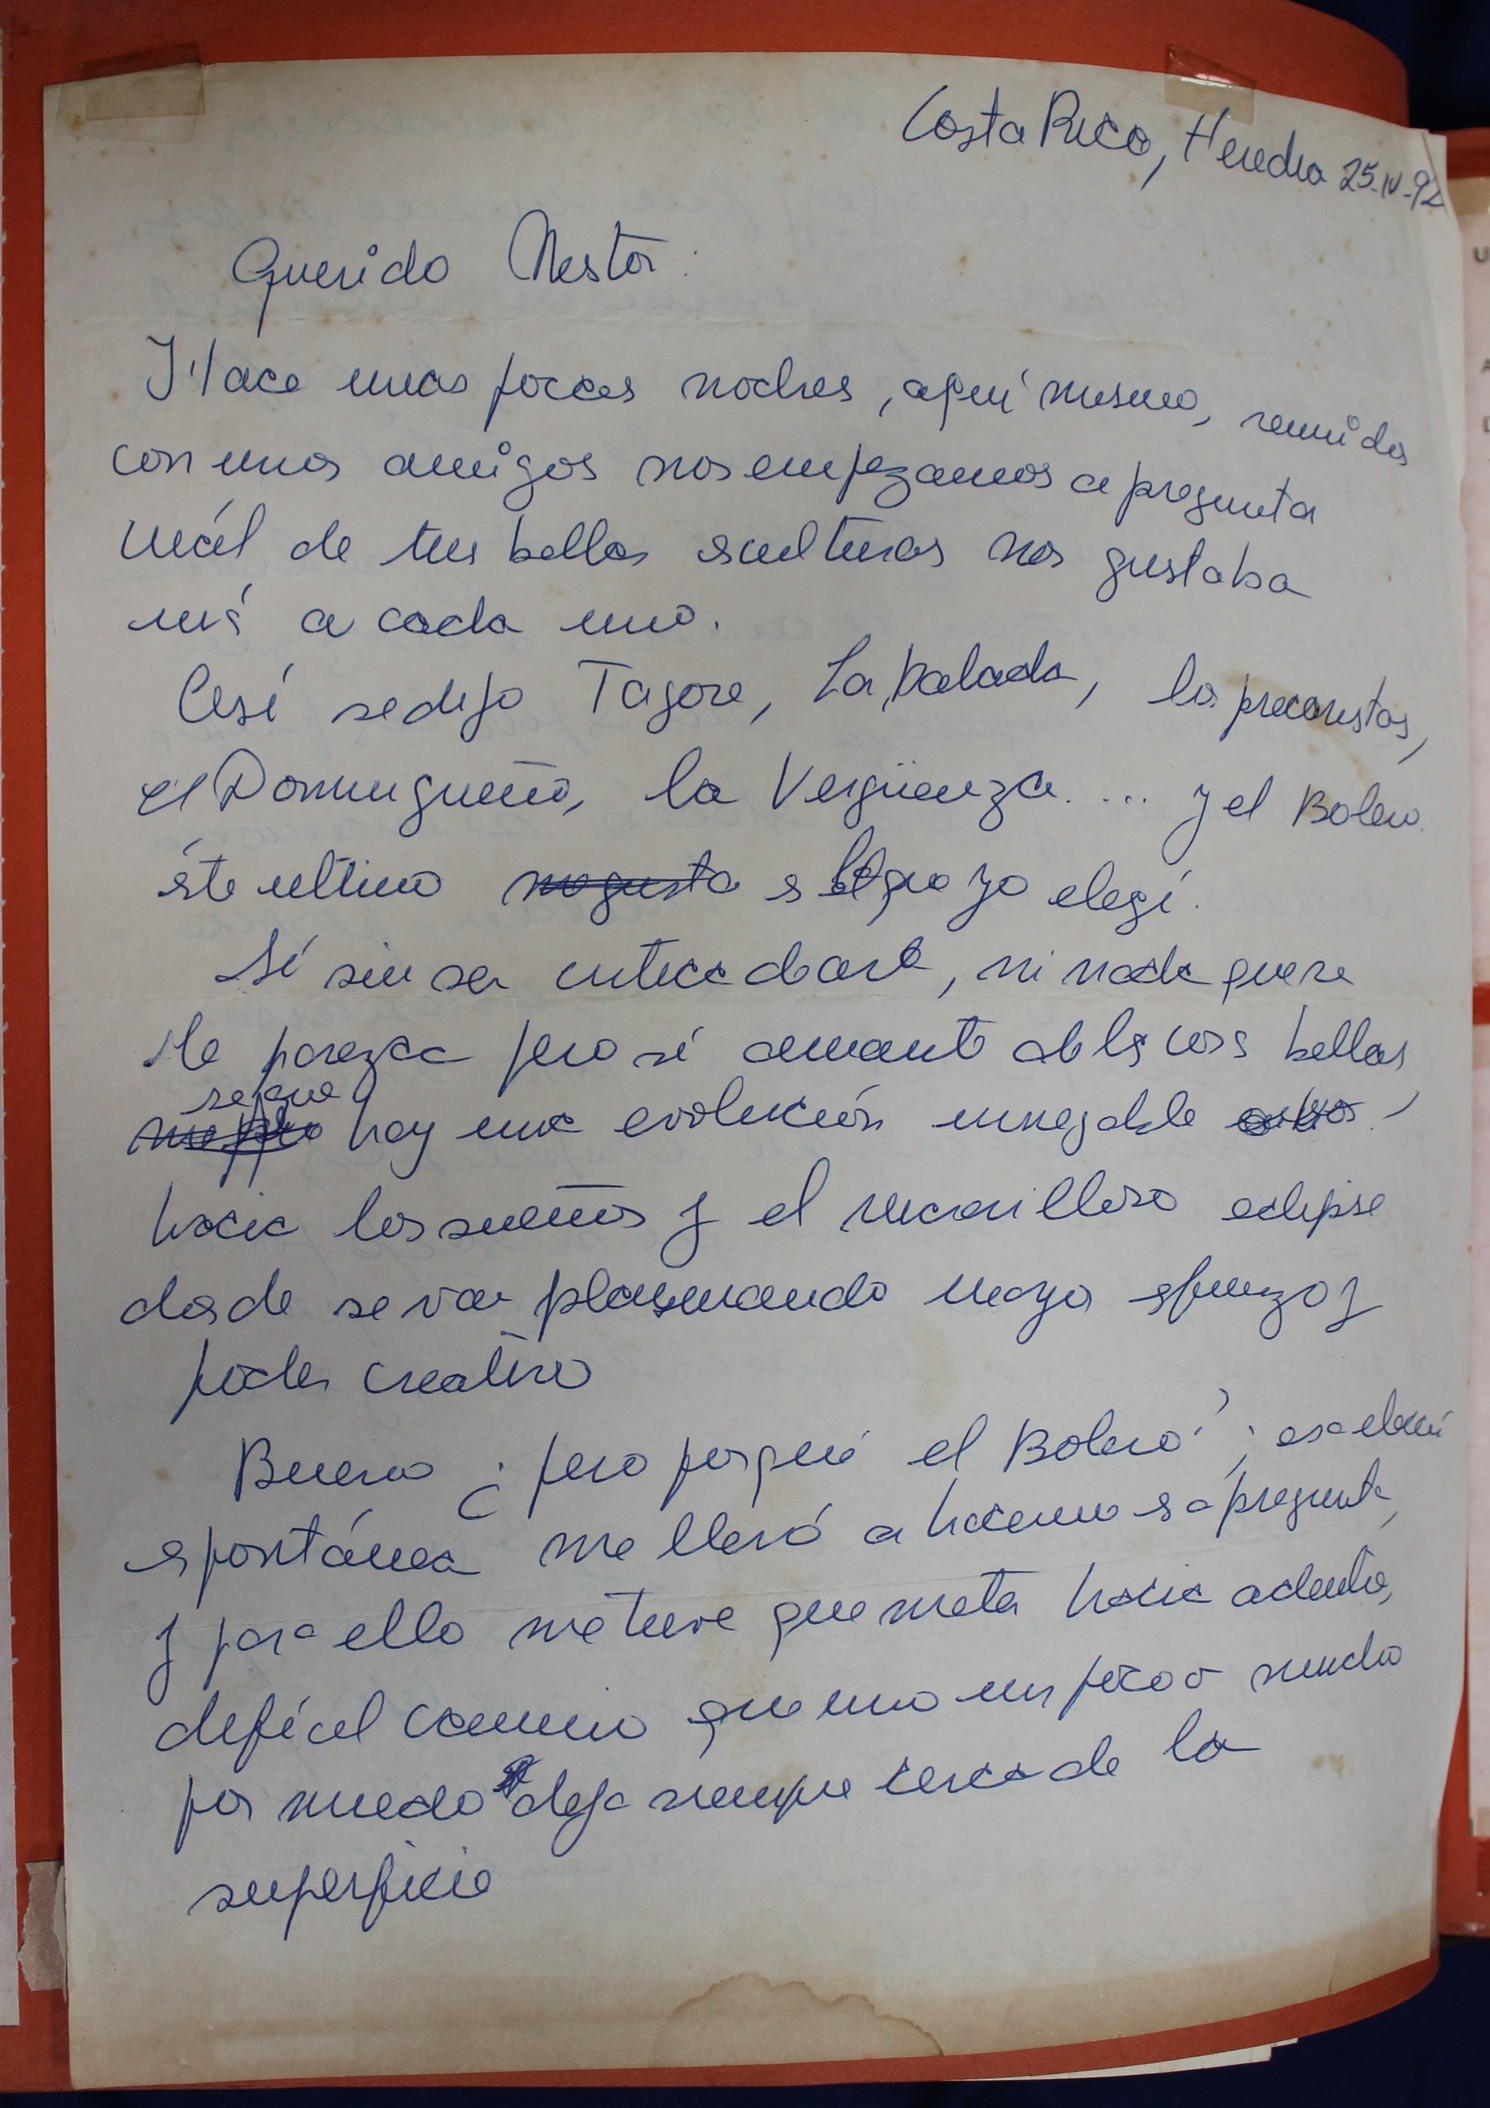 Costa Rica, Heredia 25-IV-92
Querido Nestor:
Hace unas pocas noches, aquí mismo, reunidos
con unos amigos nos empezamos a preguntar
cuál de tus bellas esculturas nos gustaba
más a cada uno.
Así se dijo Tagore, La balada, los precaristas,
el Domingueño, la Vergüenza.... y el Bolero
éste ultimo me gusta es el que yo elegí.
Sí sin ser critico de arte, ni nada que se
le parezca pero sí amante de las cosas bellas
se que
hay una evolución innegable
hacia los sueños y el maravilloso eclipse
donde se van plasmando mayor esfuerzo y
poder creativo
Bueno ¿pero porqué el Bolero?; esa elección
espontánea me llevó a hacerme esa pregunta,
y para ello me tuve que meter hacia adentro,
difícil camino que uno un poco o mucho
por miedo deja siempre cerca de la
superficie